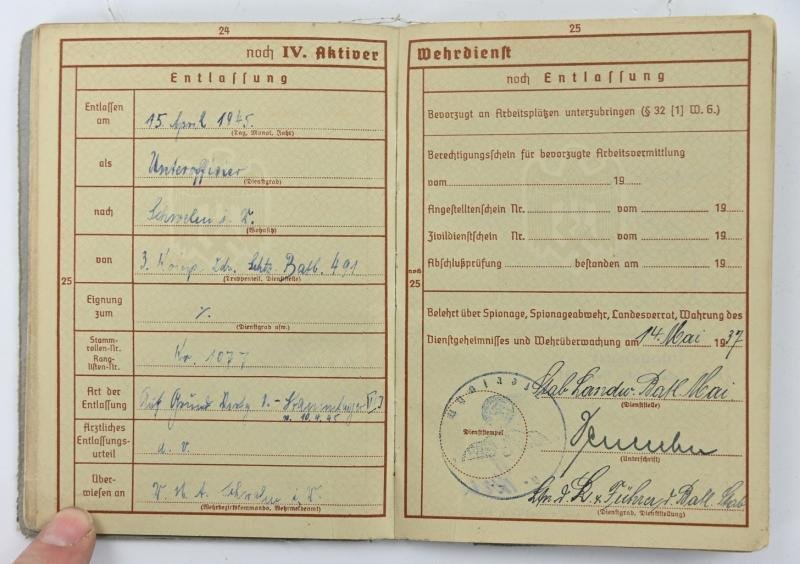 24
noch IV. Aktiver
Entlassung
Entlassen am
15. April 1945.
(Tag, Monat, Jahr)
als
Unteroffizier
(Dienstgrad)
nach
Schwelm i. W.
(Wohnsitz)
von
3. Komp. Lds. Schtz. Batl. 491
(Truppenteil, Dienststelle)
25
Eignung zum
(Dienstgrad usw.)
Stamm-
rollen-Nr.
Rang-
listen-Nr.
Nr. 1077
Art der
Entlassung
Auf Grund
v. 10.4.45
Ärztliches
Entlassungs-
urteil
Über-
wiesen an
W. M. A. Schwelm i. W.
(Wehrbezirkskommando, Wehrmeldeamt)
25
Wehrdienst
noch Entlassung
Bevorzugt an Arbeitsplätzen unterzubringen (§ 32 [1] W. G.)
Berechtigungsschein für bevorzugte Arbeitsvermittlung
vom 19
Angestelltenschein Nr. vom 19
Zivildienstschein Nr. vom 19
Abschlußprüfung bestanden am 19
noch
25
Belehrt über Spionage, Spionageabwehr, Landesverrat, Wahrung des
Dienstgeheimnisses und Wehrüberwachung am 14. Mai 1937
Stab Landw. Batl. Mai
(Dienststelle)
Dienststempel
(Unterschrift)
Lm. d. L. u. Führer d. Batl. Stab
(Dienstgrad, Dienststellung)